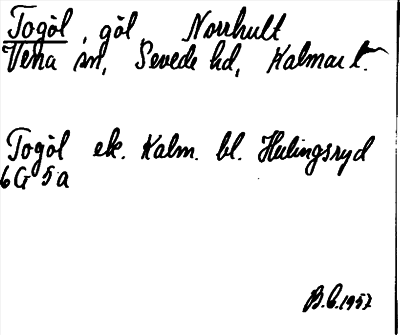 Togöl, göl Norrhult
Vena sn, Sevede hd, Kalmar l.
Togöl ek. Kalm. bl. Hulingsryd
6G 5a
B.C. 1957